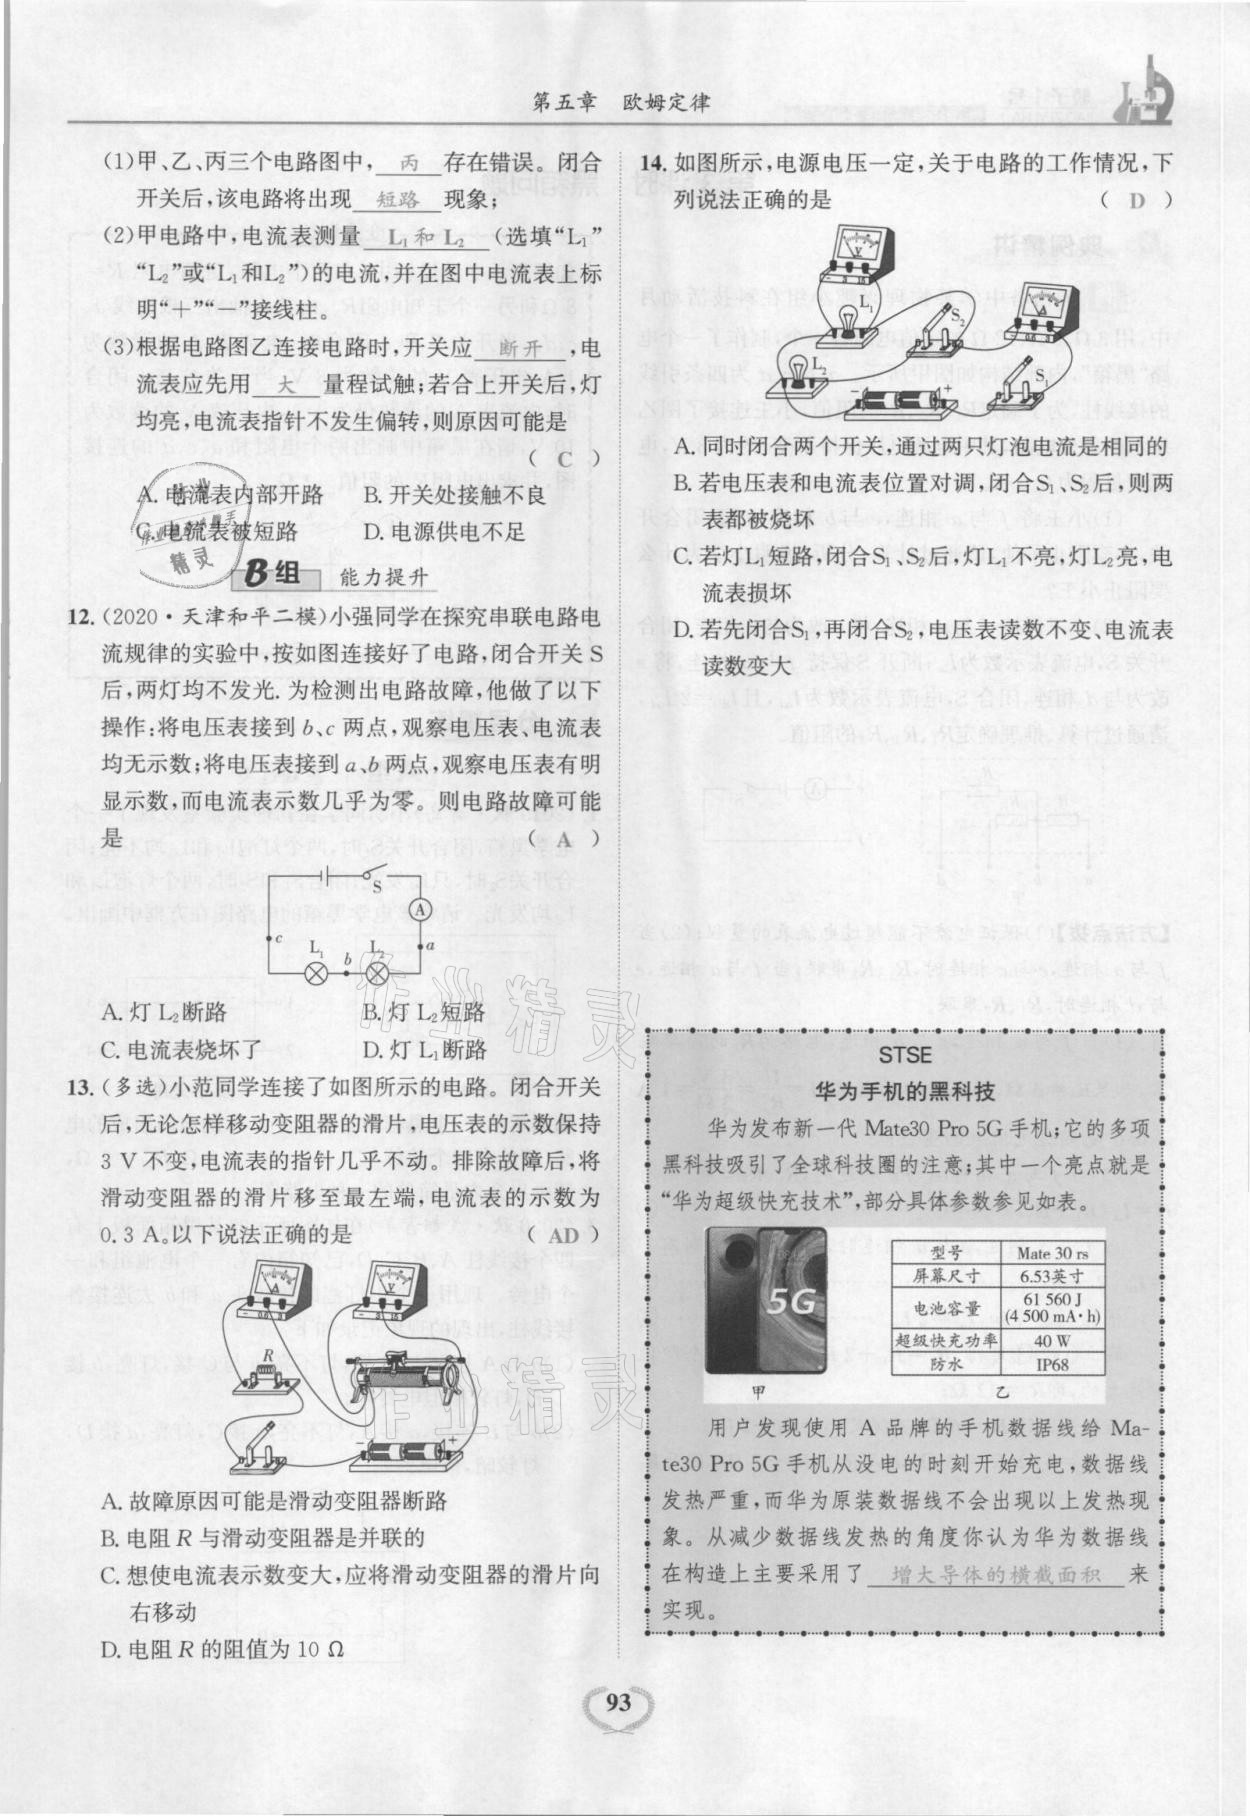 第五章 欧姆定律
(1)甲、乙、丙三个电路图中, 丙 存在错误。闭合
开关后,该电路将出现 短路 现象;
(2)甲电路中,电流表测量 L₁和L₂ (选填“L₁”
“L₂”或“L₁和L₂”)的电流,并在图中电流表上标
明“+”“-”接线柱。
(3)根据电路图乙连接电路时,开关应 断开 ,电
流表应先用 大 量程试触;若合上开关后,灯
均亮,电流表指针不发生偏转,则原因可能是
( C )
A. 电流表内部开路 B. 开关处接触不良
C. 电流表被短路 D. 电源供电不足
作业
精灵
B组 能力提升
12. (2020·天津和平二模)小强同学在探究串联电路电
流规律的实验中,按如图连接好了电路,闭合开关S
后,两灯均不发光. 为检测出电路故障,他做了以下
操作:将电压表接到 b、c 两点,观察电压表、电流表
均无示数;将电压表接到 a、b 两点,观察电压表有明
显示数,而电流表示数几乎为零。则电路故障可能
是 ( A )
S
A
c L₁ b L₂ a
A. 灯 L₂断路 B. 灯 L₂短路
C. 电流表烧坏了 D. 灯 L₁断路
13. (多选)小范同学连接了如图所示的电路。闭合开关
后,无论怎样移动变阻器的滑片,电压表的示数保持
3 V 不变,电流表的指针几乎不动。排除故障后,将
滑动变阻器的滑片移至最左端,电流表的示数为
0.3 A。以下说法正确的是 ( AD )
A V
R
- +
A. 故障原因可能是滑动变阻器断路
B. 电阻 R 与滑动变阻器是并联的
C. 想使电流表示数变大,应将滑动变阻器的滑片向
右移动
D. 电阻 R 的阻值为 10 Ω
14. 如图所示,电源电压一定,关于电路的工作情况,下
列说法正确的是 ( D )
V
L₁ S₂ A
L₂ S₁
- +
A. 同时闭合两个开关,通过两只灯泡电流是相同的
B. 若电压表和电流表位置对调,闭合S₁、S₂后,则两
表都被烧坏
C. 若灯L₁短路,闭合S₁、S₂后,灯L₁不亮,灯L₂亮,电
流表损坏
D. 若先闭合S₁,再闭合S₂,电压表读数不变、电流表
读数变大
STSE
华为手机的黑科技
华为发布新一代 Mate30 Pro 5G 手机;它的多项
黑科技吸引了全球科技圈的注意;其中一个亮点就是
“华为超级快充技术”,部分具体参数参见如表。
5G
型号 Mate 30 rs
屏幕尺寸 6.53英寸
电池容量 61 560 J
(4 500 mA·h)
超级快充功率 40 W
防水 IP68
甲 乙
用户发现使用 A 品牌的手机数据线给 Ma-
te30 Pro 5G 手机从没电的时刻开始充电,数据线
发热严重,而华为原装数据线不会出现以上发热现
象。从减少数据线发热的角度你认为华为数据线
在构造上主要采用了 增大导体的横截面积 来
实现。
作业精灵
作业精灵
93